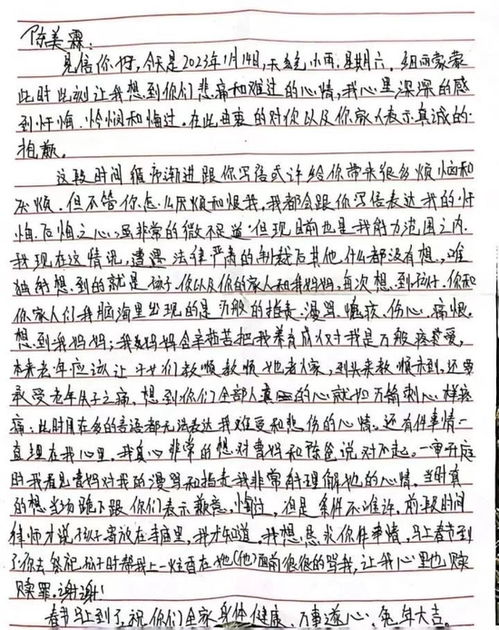 陈美霖:
见信你好,今天是2023年1月14日,天气小雨,星期六,细雨蒙蒙
此时此刻让我想到你们悲痛和难过的心情,我心里深深的感
到忏悔、怜悯和悔过,在此由衷的对你以及你家人表示真诚的
抱歉。
这段时间循序渐进跟你写信或许给你带来很多烦恼和
厌烦,但不管你怎么厌烦和恨我,我都会跟你写信表达我的忏
悔,后悔之心,虽非常的微不足道,但现目前也是我能力范围之内
我现在这情况,遭遇法律严肃的制裁后其他什么都没有想,唯
独所想到的就是孩子,你以及你的家人和我妈妈,每次想到孩子,你和
你家人们我脑海里出现的是万般的指责、漫骂、 伤心、痛恨,
想到我妈妈;我妈妈含辛茹苦把我养育成人对我是万般疼爱,
本来去年应该让子女们孝顺孝顺她老人家,到头来孝顺未到,还要
承受老年 子之痛,想到你们全部人 的心就如万箭刺心一样疼
痛,此时用在多的言语都无法表达我难受和悲伤的心情。还有件事情一
直埋在我心里,我真心非常的想对曹妈和陈爸说对不起。一审开庭
时我看见曹妈对我的漫骂和指责我非常能理解她的心情,当时真
的想当场跪下跟你们表示歉意,悔过,但是条件不准许,前段时间
律师才说孩子寄放在寺庙里,我才知道,我想恳求你件事情,马上春节到
了你去祭祀孩子时帮我上一炷香在她(他)面前狠狠的骂我,让我心里也赎
赎罪。谢谢!
春节马上到了,祝你们全家身体健康、万事遂心、兔年大吉。